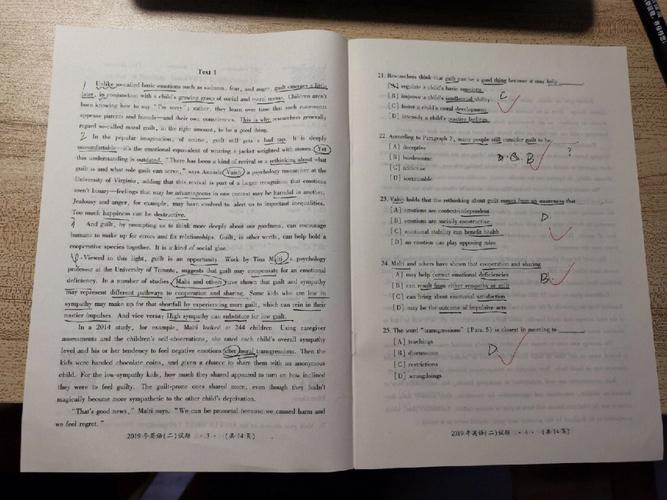 Text 1
Unlike so-called basic emotions such as sadness, fear, and anger, guilt emerges a little
later, in conjunction with a child's growing grasp of social and moral norms. Children aren't
born knowing how to say "I'm sorry"; rather, they learn over time that such statements
appease parents and friends—and their own consciences. This is why researchers generally
regard so-called moral guilt, in the right amount, to be a good thing.
2 In the popular imagination, of course, guilt still gets a bad rap. It is deeply
uncomfortable—it's the emotional equivalent of wearing a jacket weighted with stones. Yet
this understanding is outdated. "There has been a kind of revival or a rethinking about what
guilt is and what role guilt can serve," says Amrisha Vaish, a psychology researcher at the
University of Virginia, adding that this revival is part of a larger recognition that emotions
aren't binary—feelings that may be advantageous in one context may be harmful in another.
Jealousy and anger, for example, may have evolved to alert us to important inequalities.
Too much happiness can be destructive.
And guilt, by prompting us to think more deeply about our goodness, can encourage
humans to make up for errors and fix relationships. Guilt, in other words, can help hold a
cooperative species together. It is a kind of social glue.
Viewed in this light, guilt is an opportunity. Work by Tina Malti, a psychology
professor at the University of Toronto, suggests that guilt may compensate for an emotional
deficiency. In a number of studies, Malti and others have shown that guilt and sympathy
may represent different pathways to cooperation and sharing. Some kids who are low in
sympathy may make up for that shortfall by experiencing more guilt, which can rein in their
nastier impulses. And vice versa: High sympathy can substitute for low guilt.
In a 2014 study, for example, Malti looked at 244 children. Using caregiver
assessments and the children's self-observations, she rated each child's overall sympathy
level and his or her tendency to feel negative emotions after moral transgressions. Then the
kids were handed chocolate coins, and given a chance to share them with an anonymous
child. For the low-sympathy kids, how much they shared appeared to turn on how inclined
they were to feel guilty. The guilt-prone ones shared more, even though they hadn't
magically become more sympathetic to the other child's deprivation.
"That's good news," Malti says. "We can be prosocial because we caused harm and
we feel regret."
2019年英语(二)试题 · 3 · (共14页)
21. Researchers think that guilt can be a good thing because it may help
[A] regulate a child's basic emotions
[B] improve a child's intellectual ability
C
[C] foster a child's moral development
[D] intensify a child's positive feelings
22. According to Paragraph 2, many people still consider guilt to be
[A] deceptive
[B] burdensome
B
?
[C] addictive
[D] inexcusable
23. Vaish holds that the rethinking about guilt comes from an awareness that
[A] emotions are context-independent
[B] emotions are socially constructive
D
[C] emotional stability can benefit health
[D] an emotion can play opposing roles
24. Malti and others have shown that cooperation and sharing
[A] may help correct emotional deficiencies
B
[B] can result from either sympathy or guilt
[C] can bring about emotional satisfaction
[D] may be the outcome of impulsive acts
25. The word "transgressions" (Para. 5) is closest in meaning to
[A] teachings
[B] discussions
D
[C] restrictions
[D] wrongdoings
2019年英语(二)试题 · 4 · (共14页)